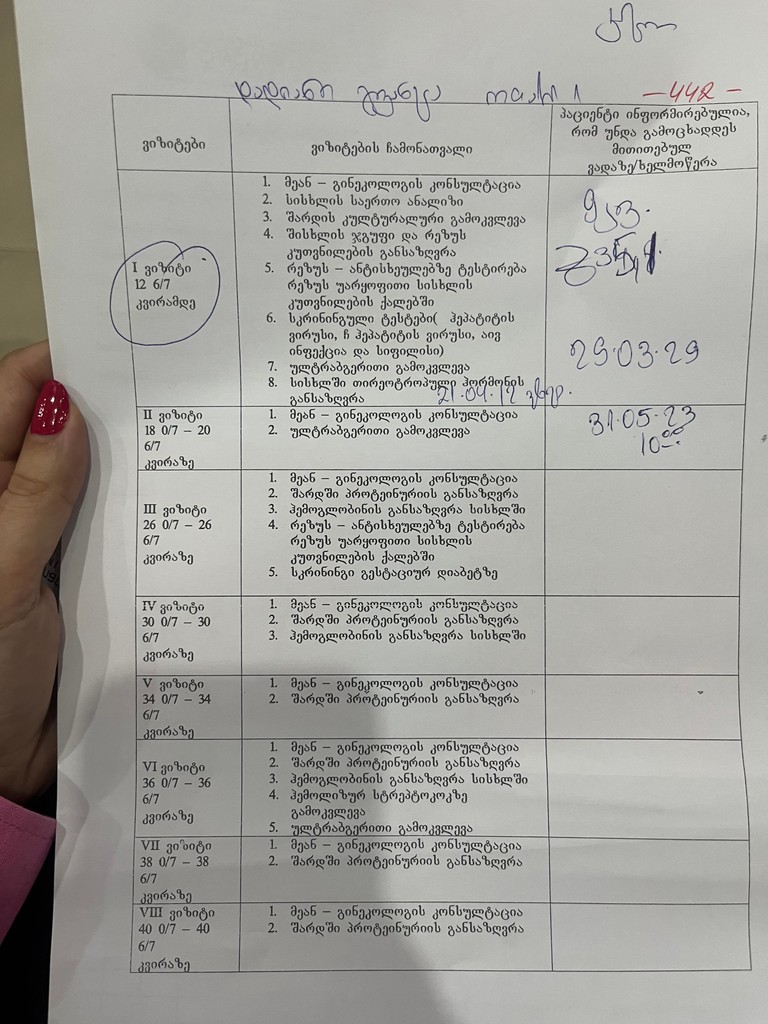 დადიანი
-442-
ვიზიტები
ვიზიტების ჩამონათვალი
პაციენტი ინფორმირებულია,
რომ უნდა გამოცხადდეს
მითითებულ
ვადაზე/ხელმოწერა
I ვიზიტი
12 6/7
კვირამდე
1. მეან – გინეკოლოგის კონსულტაცია
2. სისხლის საერთო ანალიზი
3. შარდის კულტურალური გამოკვლევა
4. შისხლის ჯგუფი და რეზუს
კუთვნილების განსაზღვრა
5. რეზუს – ანტისხეულებზე ტესტირება
რეზუს უარყოფითი სისხლის
კუთვნილების ქალებში
6. სკრინინგული ტესტები( ჰეპატიტის
ვირუსი, ჩ ჰეპატიტის ვირუსი, აივ
ინფექცია და სიფილისი)
7. ულტრაბგერითი გამოკვლევა
8. სისხლში თირეოტროპული ჰორმონის
განსაზღვრა
29.03.29
21.04.12
II ვიზიტი
18 0/7 – 20
6/7
კვირაზე
1. მეან – გინეკოლოგის კონსულტაცია
2. ულტრაბგერითი გამოკვლევა
31.05.23
10⁰⁰
III ვიზიტი
26 0/7 – 26
6/7
კვირაზე
1. მეან – გინეკოლოგის კონსულტაცია
2. შარდში პროტეინურიის განსაზღვრა
3. ჰემოგლობინის განსაზღვრა სისხლში
4. რეზუს – ანტისხეულებზე ტესტირება
რეზუს უარყოფითი სისხლის
კუთვნილების ქალებში
5. სკრინინგი გესტაციურ დიაბეტზე
IV ვიზიტი
30 0/7 – 30
6/7
კვირაზე
1. მეან – გინეკოლოგის კონსულტაცია
2. შარდში პროტეინურიის განსაზღვრა
3. ჰემოგლობინის განსაზღვრა სისხლში
V ვიზიტი
34 0/7 – 34
6/7
კვირაზე
1. მეან – გინეკოლოგის კონსულტაცია
2. შარდში პროტეინურიის განსაზღვრა
VI ვიზიტი
36 0/7 – 36
6/7
კვირაზე
1. მეან – გინეკოლოგის კონსულტაცია
2. შარდში პროტეინურიის განსაზღვრა
3. ჰემოგლობინის განსაზღვრა სისხლში
4. ჰემოლიზურ სტრეპტოკოკზე
გამოკვლევა
5. ულტრაბგერითი გამოკვლევა
VII ვიზიტი
38 0/7 – 38
6/7
კვირაზე
1. მეან – გინეკოლოგის კონსულტაცია
2. შარდში პროტეინურიის განსაზღვრა
VIII ვიზიტი
40 0/7 – 40
6/7
კვირაზე
1. მეან – გინეკოლოგის კონსულტაცია
2. შარდში პროტეინურიის განსაზღვრა